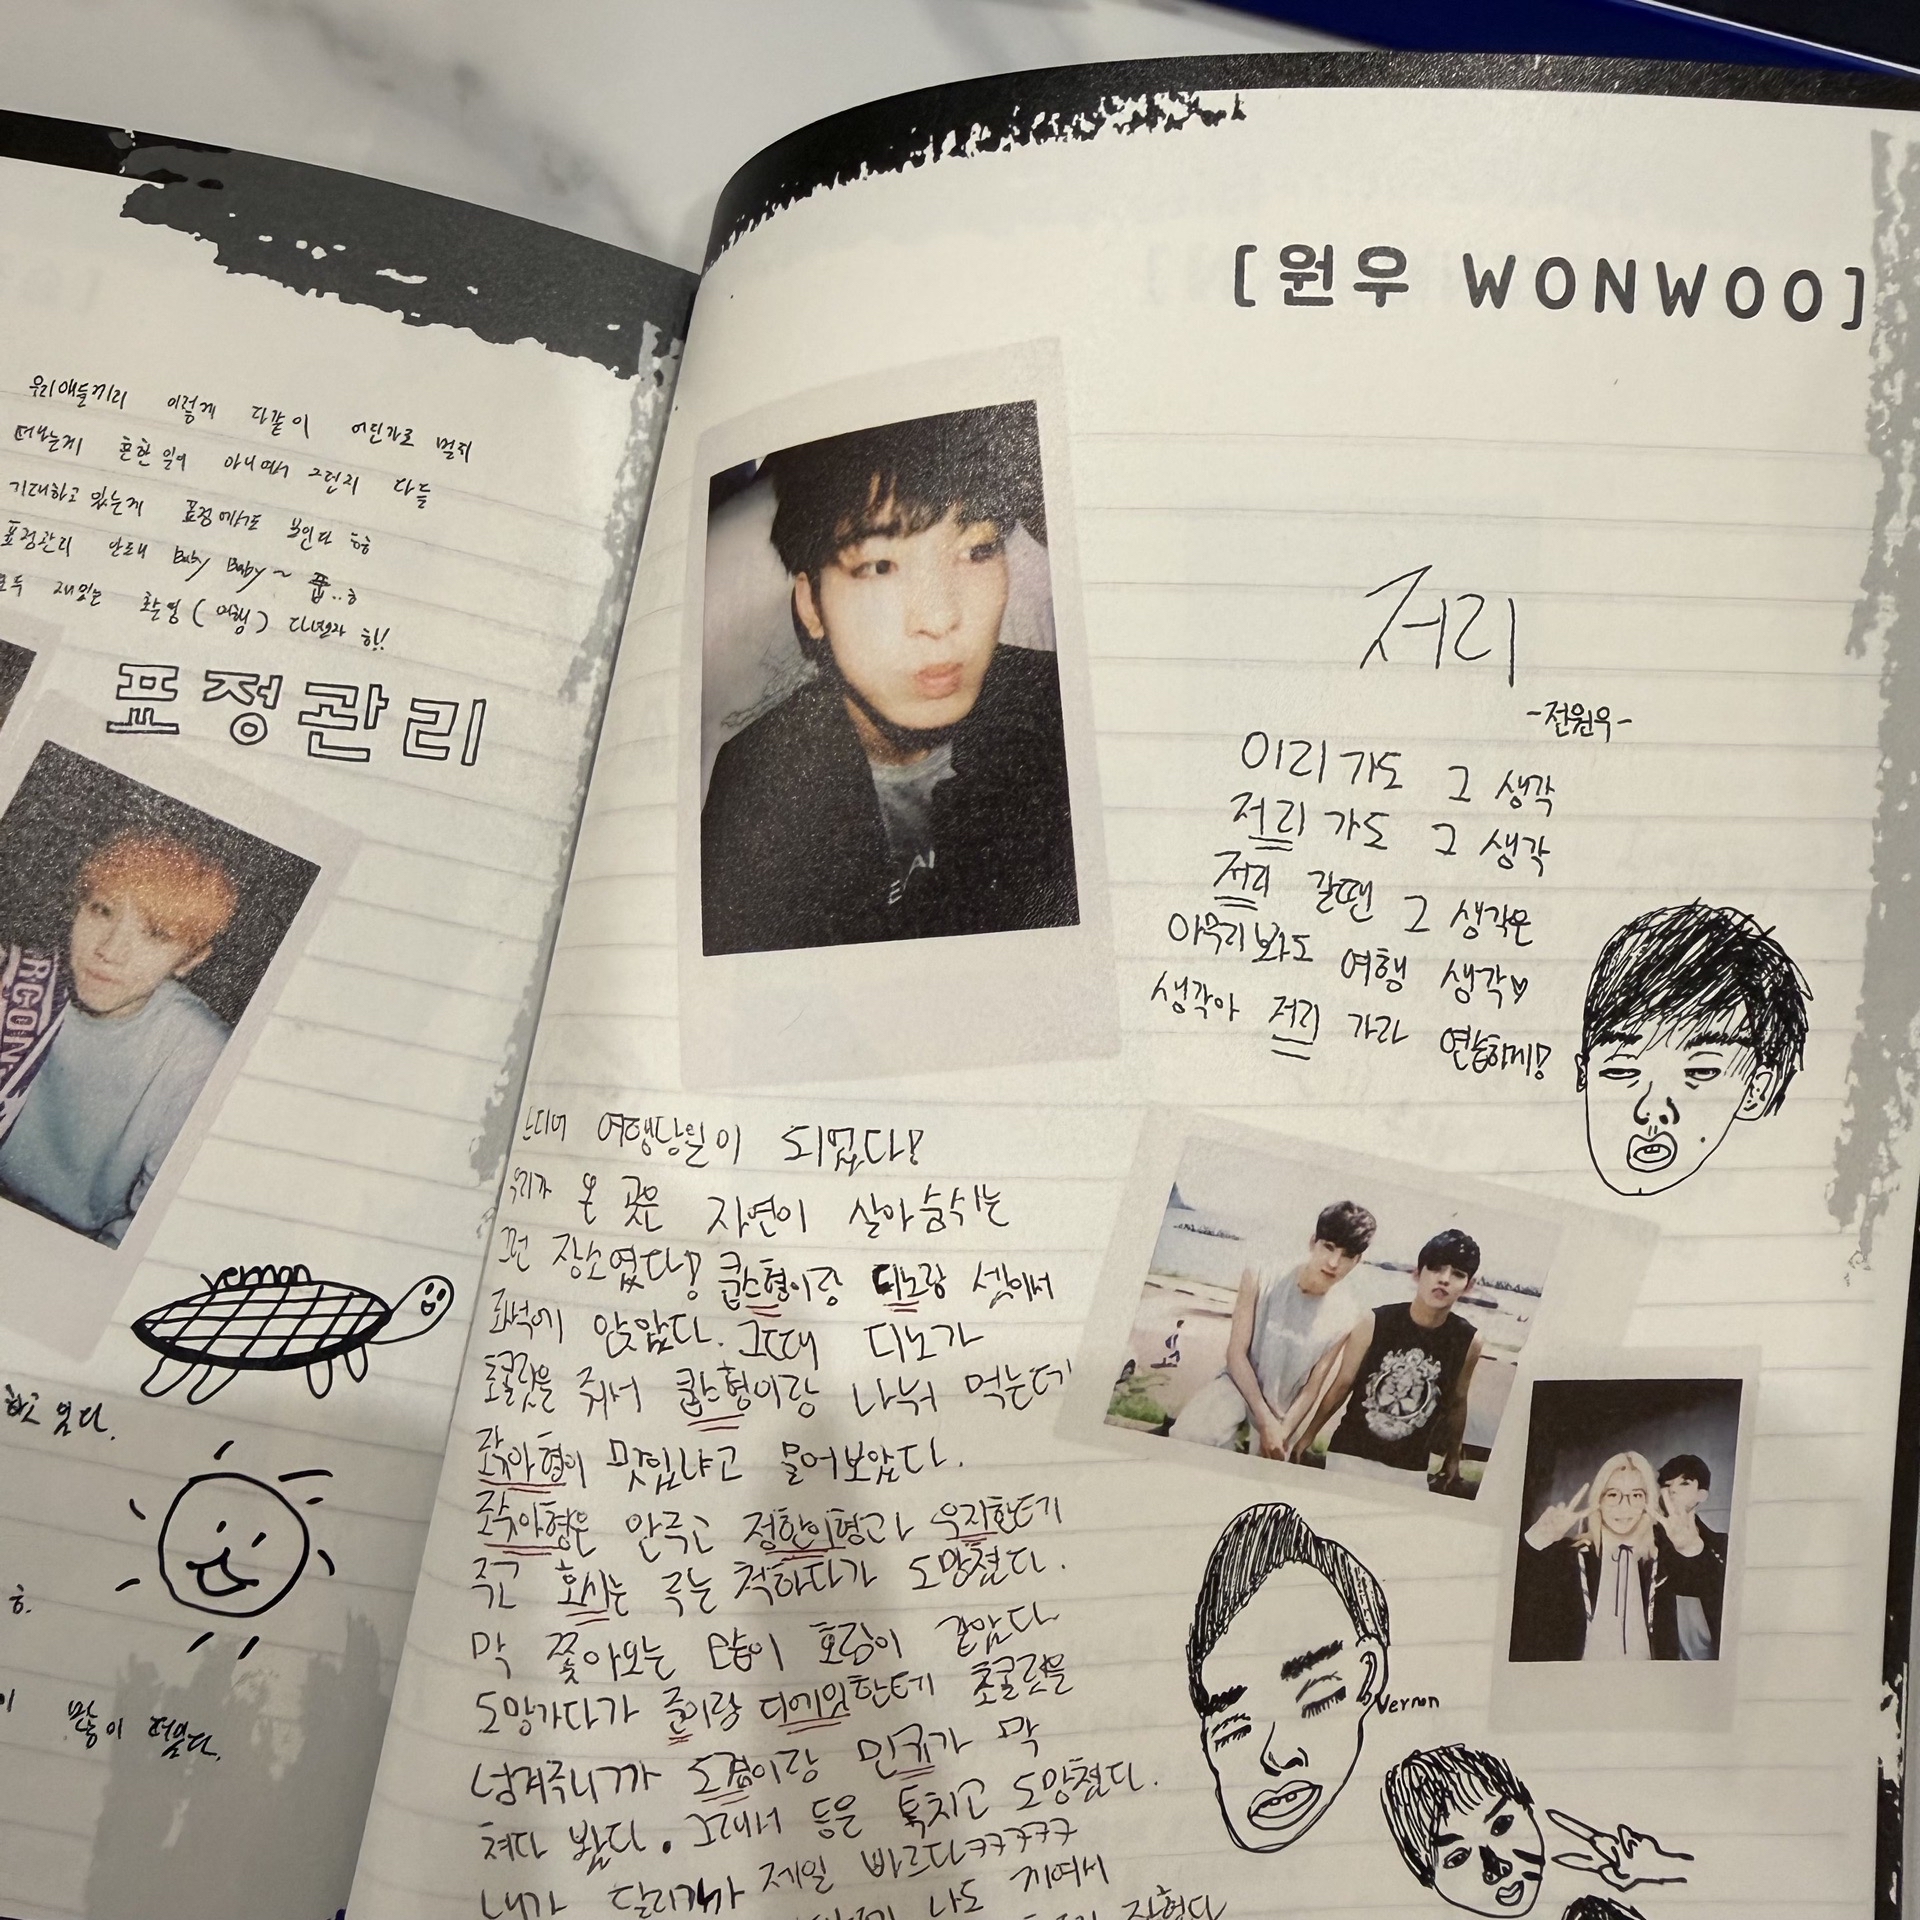 우리애들끼리 이렇게 다같이 어딘가로 멀리
떠나는게 흔한 일이 아니여서 그런지 다들
기대하고 있는게 표정에서도 보인다 ㅎㅎ
표정관리 안돼 Baby Baby~ 풉..ㅎ
모두 재밌는 촬영 (여행) 다녀오자 히!!
표정관리
RGON
vernon
하고 있다.
ㅎ.
많이 더웠다.
[원우 WONWOO]
저리
-전원우-
이리 가도 그 생각
저리 가도 그 생각
저리 갈땐 그 생각은
아무리봐도 여행 생각♥
생각아 저리 가라 연습하게!
드디어 여행당일이 되었다!
우리가 온 곳은 자연이 살아숨쉬는
그런 장소였다! 쿱스형이랑 디노랑 셋이서
좌석에 앉았다. 그때 디노가
초콜릿을 줘서 쿱스형이랑 나눠 먹는데
죠슈아형이 맛있냐고 물어보았다.
죠슈아형은 안주고 정한이형과 우지한테
주고 호시는 주는 척하다가 도망쳤다.
막 쫓아오는 모습이 호랑이 같았다
도망가다가 준이랑 디에잇한테 초콜릿을
넘겨주니까 도겸이랑 민규가 막
쳐다 봤다. 그래서 등을 툭치고 도망쳤다.
내가 달리기가 제일 빠르다ㅋㅋㅋㅋㅋ
나도 끼여서
Vernon